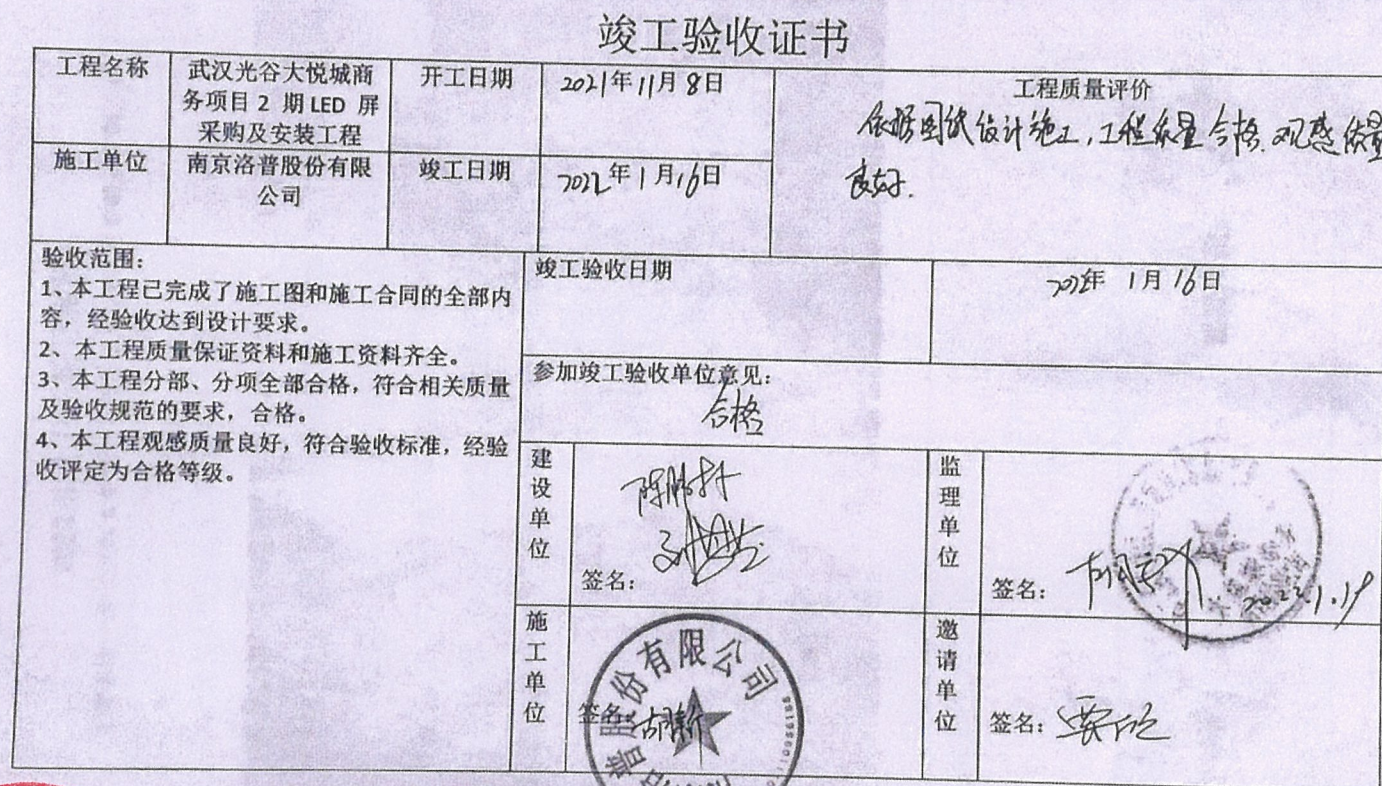 竣工验收证书
工程名称
武汉光谷大悦城商
务项目 2 期 LED 屏
采购及安装工程
开工日期
2021年11月8日
工程质量评价
依据图纸设计施工,工程质量合格.观感质量
良好.
施工单位
南京洛普股份有限
公司
竣工日期
2022年1月16日
验收范围:
1、本工程已完成了施工图和施工合同的全部内
容,经验收达到设计要求。
2、本工程质量保证资料和施工资料齐全。
3、本工程分部、分项全部合格,符合相关质量
及验收规范的要求,合格。
4、本工程观感质量良好,符合验收标准,经验
收评定为合格等级。
竣工验收日期
2022年 1月16日
参加竣工验收单位意见:
合格
建设单位
签名:
监理单位
签名:
2022.1.19
施工单位
签名:
普股份有限公司
邀请单位
签名: